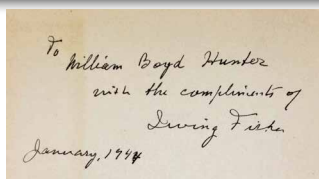 To
William Boyd Hunter
with the compliments of
Irving Fisher
January, 1944